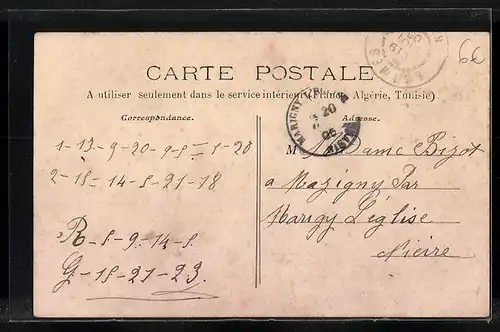 66
CARTE POSTALE
A utiliser seulement dans le service intérieur (France, Algérie, Tunisie)
Correspondance.
Adresse.
1-13-9-20-9-5 = 1-20
2-15-14-5-21-18
R-5-9-14-5
G-15-21-23.
MARIGNY
20
06
Madame Bizot
a Mazigny Par
Marigy L'église
Nievre